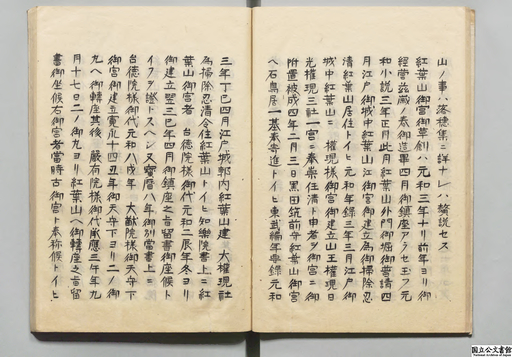 山ノ事ハ落穂集ニ詳ナレハ贅説セス
紅葉山御宮御草創ハ元和三年ナリ前年ヨリ御
経営茲厳ノ奉御造畢四月御鎮座アラセ玉フ元
和小説三年正月此月紅葉山外門御堀御普請四
月江戸御城中紅葉山江御宮御建立為御掃除忍
清紅葉山居住トイヒ元和年録三年三月江戸御
城中紅葉山ニ権現様御宮御建立山王権現日
光権現三社一宮ニ奉崇住清ト申者ヲ御宮ニ御
附置被成四年二月三日黒田筑前守紅葉山御宮
ヘ石鳥居一基奉寄進トイヒ東武編年集録元和
三年丁巳四月江戸城郭内紅葉山建大権現社
為掃除忍清令住紅葉山トイヒ知楽院書上ニ紅
葉山御宮者台徳院様御代元和二辰年冬ヨリ
御建立翌三巳年四月御鎮座之旨留書御座候ト
イフヲ證トスヘシ又寳暦八年御別當書上ニ
台徳院様御代元和八戌年大猷院様御天守下
御宮御建立寛永十四丑年御天守下ヨリ二ノ御
丸ヘ御轉座其後厳有院様御代承應三午年九
月十七日二ノ御丸ヨリ紅葉山ヘ御轉座之旨留
書御坐候右御宮者當時古御宮ト奉称候トイヒ
国立公文書館
National Archives of Japan